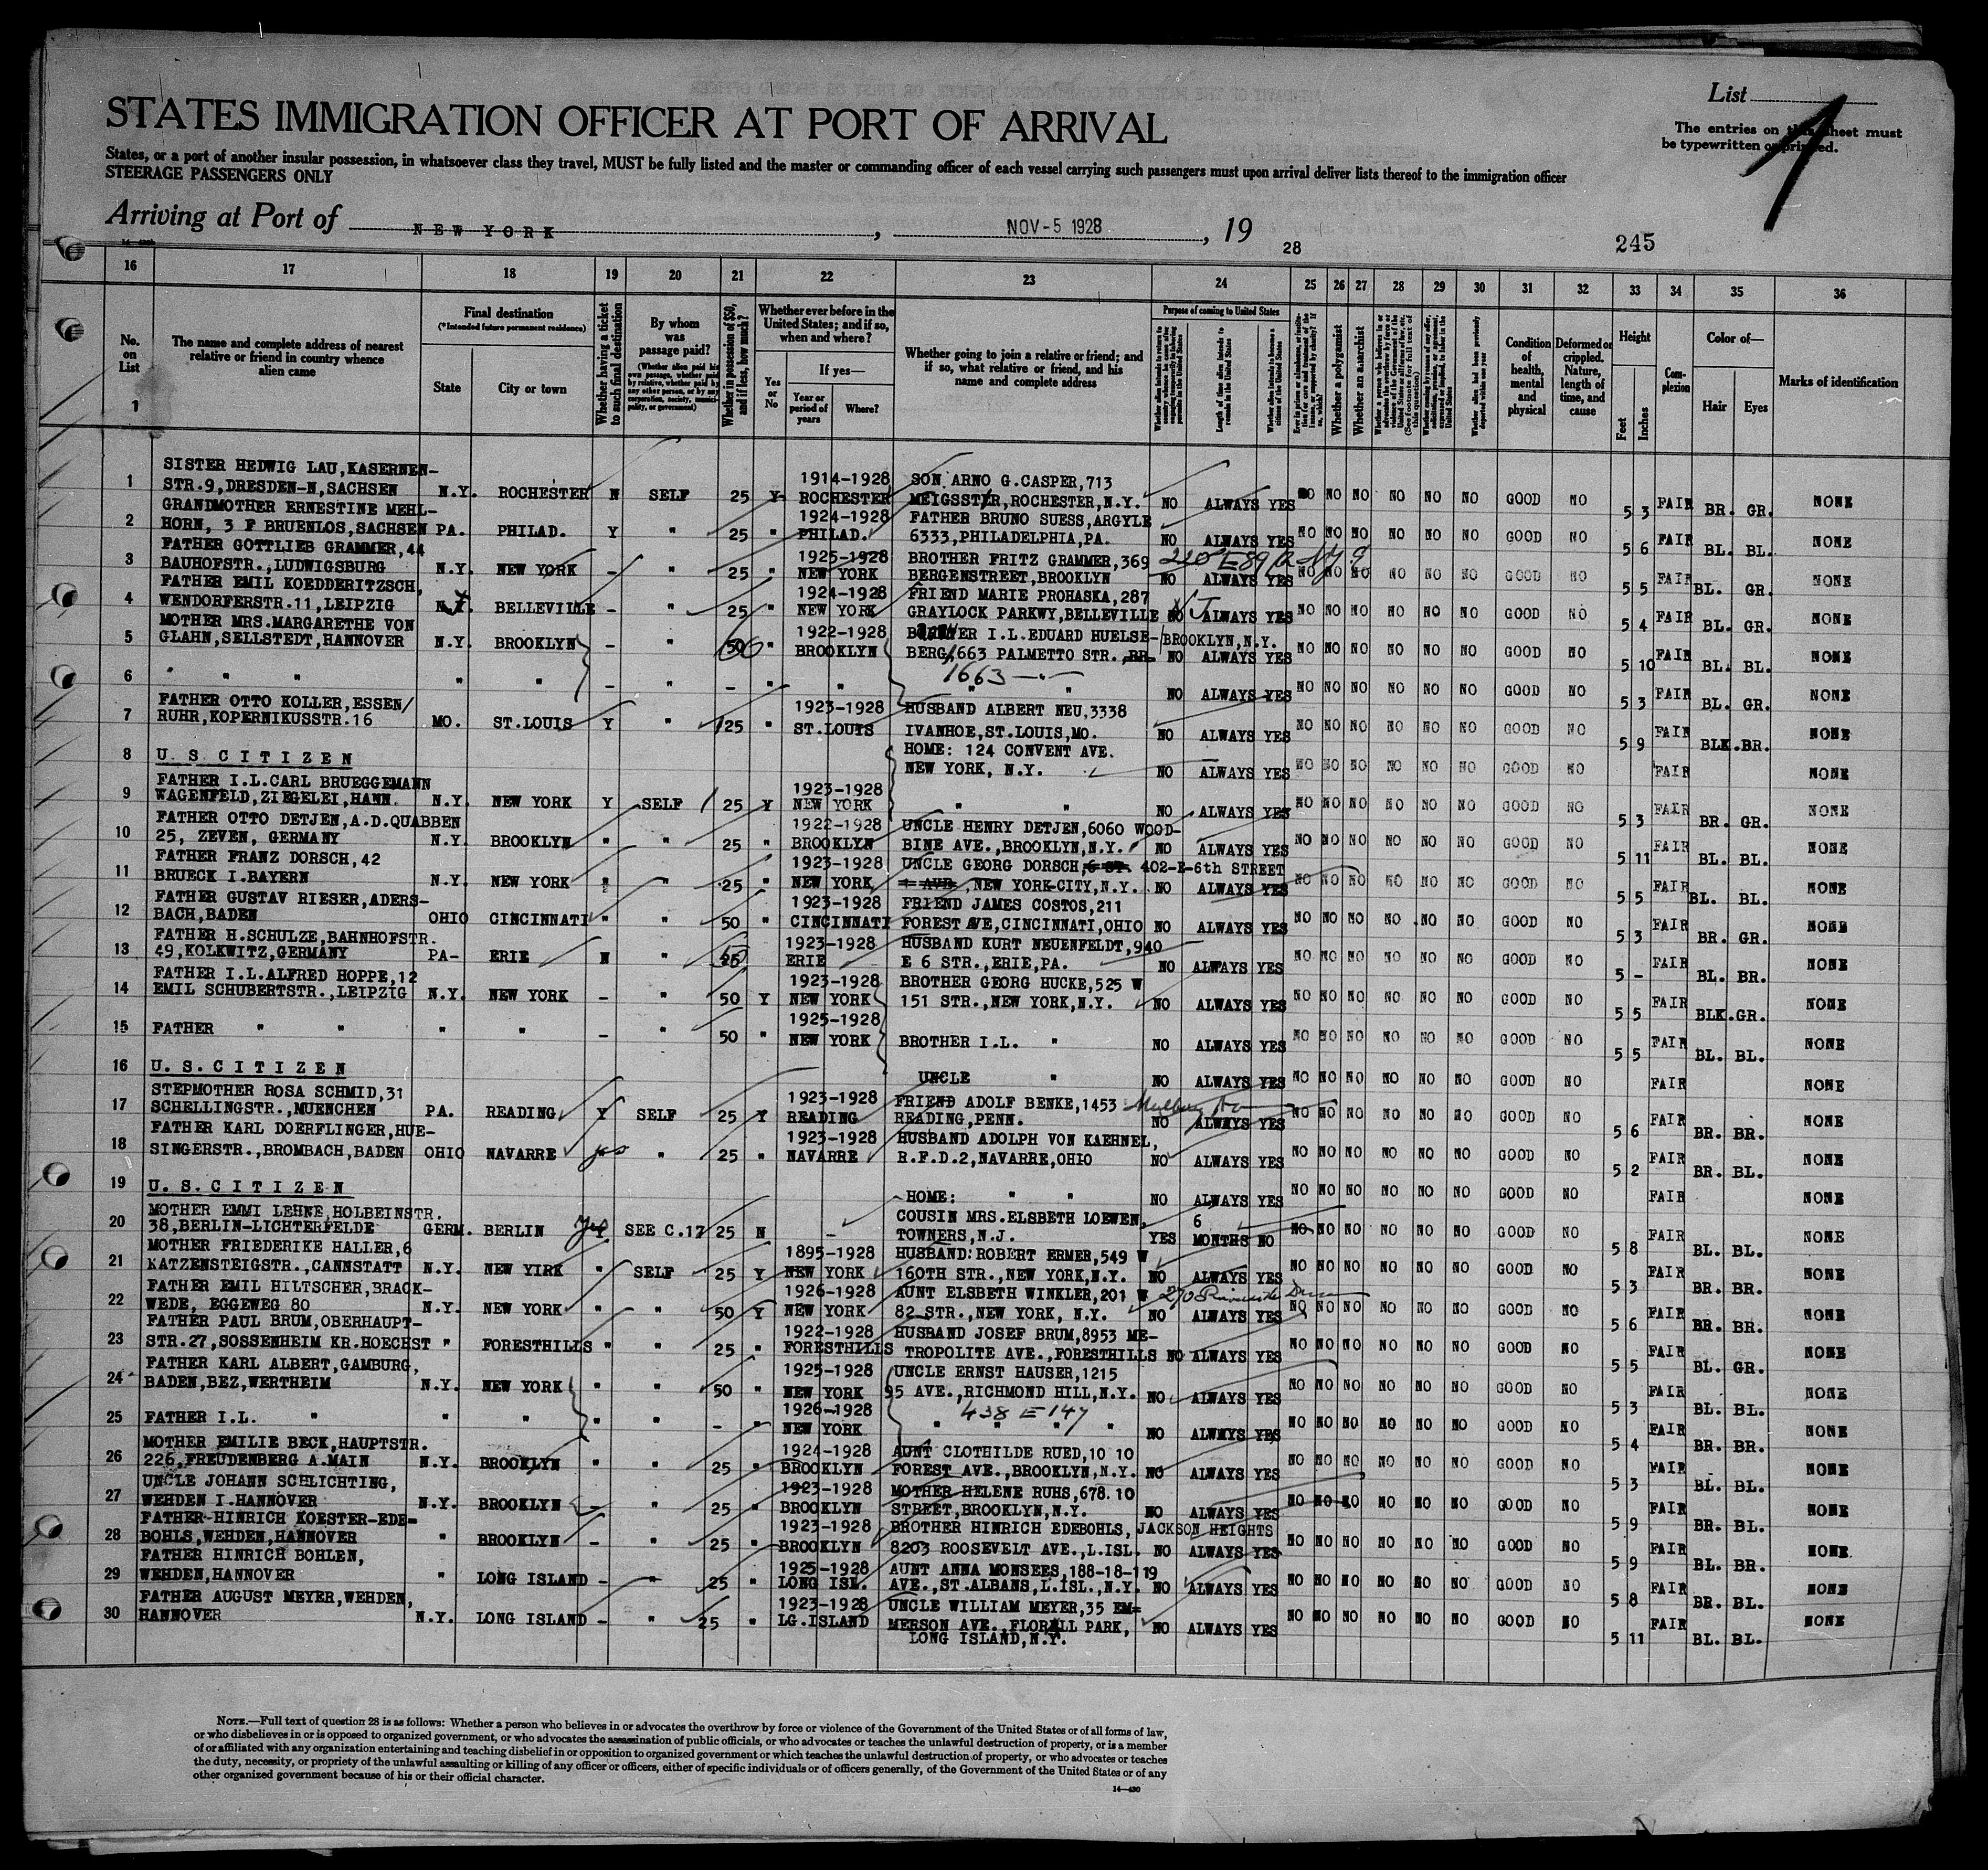 List
1
The entries on this sheet must
be typewritten or printed.
STATES IMMIGRATION OFFICER AT PORT OF ARRIVAL
States, or a port of another insular possession, in whatsoever class they travel, MUST be fully listed and the master or commanding officer of each vessel carrying such passengers must upon arrival deliver lists thereof to the immigration officer
STEERAGE PASSENGERS ONLY
Arriving at Port of NEW YORK, NOV-5 1928, 19 28
245
16 17 18 19 20 21 22 23 24 25 26 27 28 29 30 31 32 33 34 35 36
No. on List
The name and complete address of nearest relative or friend in country whence alien came
Final destination
(*Intended future permanent residence)
State
City or town
Whether having a ticket to such final destination
By whom was passage paid?
(Whether alien paid his own passage, whether paid by relative, whether paid by any other person, or by any corporation, society, municipality, or government)
Whether in possession of $50, and if less, how much?
Whether ever before in the United States; and if so, when and where?
Yes or No
If yes—
Year or period of years
Where?
Whether going to join a relative or friend; and if so, what relative or friend, and his name and complete address
Purpose of coming to United States
Length of time alien intends to remain in the United States
Whether alien intends to become a citizen of the United States
Whether a polygamist
Whether an anarchist
Condition of health, mental and physical
Deformed or crippled. Nature, length of time, and cause
Height
Feet
Inches
Complexion
Color of—
Hair
Eyes
Marks of identification
1 SISTER HEDWIG LAU,KASERNEN-STR.9,DRESDEN-N,SACHSEN N.Y. ROCHESTER N SELF 25 Y 1914-1928 ROCHESTER SON ARNO G.CASPER,713 MEIGSSTR,ROCHESTER,N.Y. NO ALWAYS YES NO NO NO NO NO NO GOOD NO 5 3 FAIR BR. GR. NONE
2 GRANDMOTHER ERNESTINE MEHL-HORN, 3 F BRUENLOS,SACHSEN PA. PHILAD. Y " 25 " 1924-1928 PHILAD. FATHER BRUNO SUESS,ARGYLE 6333,PHILADELPHIA,PA. NO ALWAYS YES NO NO NO NO NO NO GOOD NO 5 6 FAIR BL. BL. NONE
3 FATHER GOTTLIEB GRAMMER,44 BAUHOFSTR.,LUDWIGSBURG N.Y. NEW YORK - " 25 " 1925-1928 NEW YORK BROTHER FRITZ GRAMMER,369 BERGENSTREET,BROOKLYN NO ALWAYS YES NO NO NO NO NO NO GOOD NO 5 5 FAIR BL. GR. NONE
4 FATHER EMIL KOEDDERITZSCH, WENDORFERSTR.11,LEIPZIG BELLEVILLE - " 25 " 1924-1928 NEW YORK FRIEND MARIE PROHASKA,287 GRAYLOCK PARKWY,BELLEVILLE NO ALWAYS YES NO NO NO NO NO NO GOOD NO 5 4 FAIR BL. GR. NONE
5 MOTHER MRS.MARGARETHE VON GLAHN,SELLSTEDT,HANNOVER N.Y. BROOKLYN - " 50 " 1922-1928 BROOKLYN I.L.EDUARD HUELSE-BERG,663 PALMETTO STR.,BR- BROOKLYN,N.Y. NO ALWAYS YES NO NO NO NO NO NO GOOD NO 5 10 FAIR BL. BL. NONE
6 " " " " " - " - " " 1663 " " NO ALWAYS YES NO NO NO NO NO NO GOOD NO 5 3 FAIR BL. GR. NONE
7 FATHER OTTO KOLLER,ESSEN/RUHR,KOPERNIKUSSTR.16 MO. ST.LOUIS Y " 25 " 1923-1928 ST.LOUIS HUSBAND ALBERT NEU,3338 IVANHOE,ST.LOUIS,MO. NO ALWAYS YES NO NO NO NO NO NO GOOD NO 5 9 FAIR BLK.BR. NONE
8 U.S.CITIZEN HOME: 124 CONVENT AVE. NEW YORK, N.Y. NO ALWAYS YES NO NO NO NO NO NO GOOD NO FAIR NONE
9 FATHER I.L.CARL BRUEGGEMANN WAGENFELD,ZIEGELEI,HANN. N.Y. NEW YORK Y SELF 25 Y 1923-1928 NEW YORK " " NO ALWAYS YES NO NO NO NO NO NO GOOD NO 5 3 FAIR BR. GR. NONE
10 FATHER OTTO DETJEN,A.D.QUABBEN 25, ZEVEN, GERMANY N.Y. BROOKLYN " " 25 " 1922-1928 BROOKLYN UNCLE HENRY DETJEN,6060 WOOD-BINE AVE.,BROOKLYN,N.Y. NO ALWAYS YES NO NO NO NO NO NO GOOD NO 5 11 FAIR BL. BL. NONE
11 FATHER FRANZ DORSCH,42 BRUECK I.BAYERN N.Y. NEW YORK " " 25 " 1923-1928 NEW YORK UNCLE GEORG DORSCH, 402-E-6th STREET ,NEW YORK-CITY,N.Y. NO ALWAYS YES NO NO NO NO NO NO GOOD NO 5 5 FAIR BL. BL. NONE
12 FATHER GUSTAV RIESER,ADERS-BACH,BADEN OHIO CINCINNATI " " 50 " 1923-1928 CINCINNATI FRIEND JAMES COSTOS,211 FOREST AVE,CINCINNATI,OHIO NO ALWAYS YES NO NO NO NO NO NO GOOD NO 5 3 FAIR BR. GR. NONE
13 FATHER H.SCHULZE,BAHNHOFSTR. 49,KOLKWITZ,GERMANY PA- ERIE N " " 1923-1928 ERIE HUSBAND KURT NEUENFELDT,940 E 6 STR.,ERIE,PA. NO ALWAYS YES NO NO NO NO NO NO GOOD NO 5 - FAIR BL. BR. NONE
14 FATHER I.L.ALFRED HOPPE,12 EMIL SCHUBERTSTR.,LEIPZIG N.Y. NEW YORK - " 50 Y 1923-1928 NEW YORK BROTHER GEORG HUCKE,525 W 151 STR.,NEW YORK,N.Y. NO ALWAYS YES NO NO NO NO NO NO GOOD NO 5 5 FAIR BLK.GR. NONE
15 FATHER " " " " - " 50 " 1925-1928 NEW YORK BROTHER I.L. " NO ALWAYS YES NO NO NO NO NO NO GOOD NO 5 5 FAIR BL. BL. NONE
16 U.S.CITIZEN UNCLE " NO ALWAYS YES NO NO NO NO NO NO GOOD NO FAIR NONE
17 STEPMOTHER ROSA SCHMID,31 SCHELLINGSTR.,MUENCHEN PA. READING Y SELF 25 Y 1923-1928 READING FRIEND ADOLF BENKE,1453 READING,PENN. NO ALWAYS YES NO NO NO NO NO NO GOOD NO 5 6 FAIR BR. BR. NONE
18 FATHER KARL DOERFLINGER,HUE-SINGERSTR.,BROMBACH,BADEN OHIO NAVARRE yes " 25 " 1923-1928 NAVARRE HUSBAND ADOLPH VON KAEHNEL, R.F.D.2,NAVARRE,OHIO NO ALWAYS YES NO NO NO NO NO NO GOOD NO 5 2 FAIR BR. BL. NONE
19 U.S.CITIZEN HOME: " " NO ALWAYS YES NO NO NO NO NO NO GOOD NO FAIR NONE
20 MOTHER EMMI LEHNE,HOLBEINSTR. 38,BERLIN-LICHTERFELDE GERM. BERLIN yes SEE C.17 25 N - COUSIN MRS.ELSBETH LOEWEN, TOWNERS,N.J. YES 6 MONTHS NO NO NO NO NO NO NO GOOD NO 5 8 FAIR BL. BL. NONE
21 MOTHER FRIEDERIKE HALLER,6 KATZENSTEIGSTR.,CANNSTATT N.Y. NEW YIRK " SELF 25 Y 1895-1928 NEW YORK HUSBAND:ROBERT ERMER,549 W 160TH STR.,NEW YORK,N.Y. NO ALWAYS YES NO NO NO NO NO NO GOOD NO 5 3 FAIR BR. BR. NONE
22 FATHER EMIL HILTSCHER,BRACK-WEDE, EGGEWEG 80 N.Y. NEW YORK " " 50 Y 1926-1928 NEW YORK AUNT ELSBETH WINKLER,201 W 82 STR.,NEW YORK, N.Y. 270 Riverside Drive NO ALWAYS YES NO NO NO NO NO NO GOOD NO 5 6 FAIR BR. BR. NONE
23 FATHER PAUL BRUM,OBERHAUPT-STR.27,SOSSENHEIM KR.HOECHST " FORESTHILLS " " 25 " 1922-1928 FORESTHILLS HUSBAND JOSEF BRUM,8953 ME-TROPOLITE AVE.,FORESTHILLS NO ALWAYS YES NO NO NO NO NO NO GOOD NO 5 5 FAIR BL. GR. NONE
24 FATHER KARL ALBERT,GAMBURG, BADEN,BEZ,WERTHEIM N.Y. NEW YORK " " 50 " 1925-1928 NEW YORK UNCLE ERNST HAUSER,1215 95 AVE.,RICHMOND HILL,N.Y. NO ALWAYS YES NO NO NO NO NO NO GOOD NO 5 3 FAIR BL. BL. NONE
25 FATHER I.L. " " " " " - " 1926-1928 NEW YORK 438 E 147 " " " NO ALWAYS YES NO NO NO NO NO NO GOOD NO 5 4 FAIR BR. BR. NONE
26 MOTHER EMILIE BECK,HAUPTSTR. 226,FREUDENBERG A.MAIN N.Y. BROOKLYN " " 25 " 1924-1928 BROOKLYN AUNT CLOTHILDE RUED,10 10 FOREST AVE.,BROOKLYN,N.Y. NO ALWAYS YES NO NO NO NO NO NO GOOD NO 5 3 FAIR BL. BL. NONE
27 UNCLE JOHANN SCHLICHTING, WEHDEN I.HANNOVER N.Y. BROOKLYN - " 25 " 1923-1928 BROOKLYN MOTHER HELENE RUHS,678.10 STREET,BROOKLYN,N.Y. NO ALWAYS YES NO NO NO NO NO NO GOOD NO 5 9 FAIR BR. BL. NONE
28 FATHER-HINRICH KOESTER-EDE-BOHLS,WEHDEN,HANNOVER " BROOKLYN - " 25 " 1923-1928 BROOKLYN BROTHER HINRICH EDEBOHLS, JACKSON HEIGHTS 8203 ROOSEVELT AVE.,L.ISL. NO ALWAYS YES NO NO NO NO NO NO GOOD NO 5 9 FAIR BL. BR. NONE.
29 FATHER HINRICH BOHLEN, WEHDEN,HANNOVER " LONG ISLAND - " 25 " 1925-1928 LONG ISL. AUNT ANNA MONSEES,188-18-119 AVE.,ST.ALBANS,L.ISL.,N.Y. NO ALWAYS YES NO NO NO NO NO NO GOOD NO 5 8 FAIR BR. BL. NONE
30 FATHER AUGUST MEYER,WEHDEN, HANNOVER N.Y. LONG ISLAND - " 25 " 1923-1928 LG.ISLAND UNCLE WILLIAM MEYER,35 EM-MERSON AVE.,FLORALL PARK, LONG ISLAND,N.Y. NO ALWAYS YES NO NO NO NO NO NO GOOD NO 5 11 FAIR BL. BL. NONE
NOTE.—Full text of question 28 is as follows: Whether a person who believes in or advocates the overthrow by force or violence of the Government of the United States or of all forms of law,
or who disbelieves in or is opposed to organized government, or who advocates the assassination of public officials, or who advocates or teaches the unlawful destruction of property, or is a member
of or affiliated with any organization entertaining and teaching disbelief in or opposition to organized government or which teaches the unlawful destruction of property, or who advocates or teaches
the duty, necessity, or propriety of the unlawful assaulting or killing of any officer or officers, either of specific individuals or of officers generally, of the Government of the United States or of any
other organized government because of his or their official character.
14—430